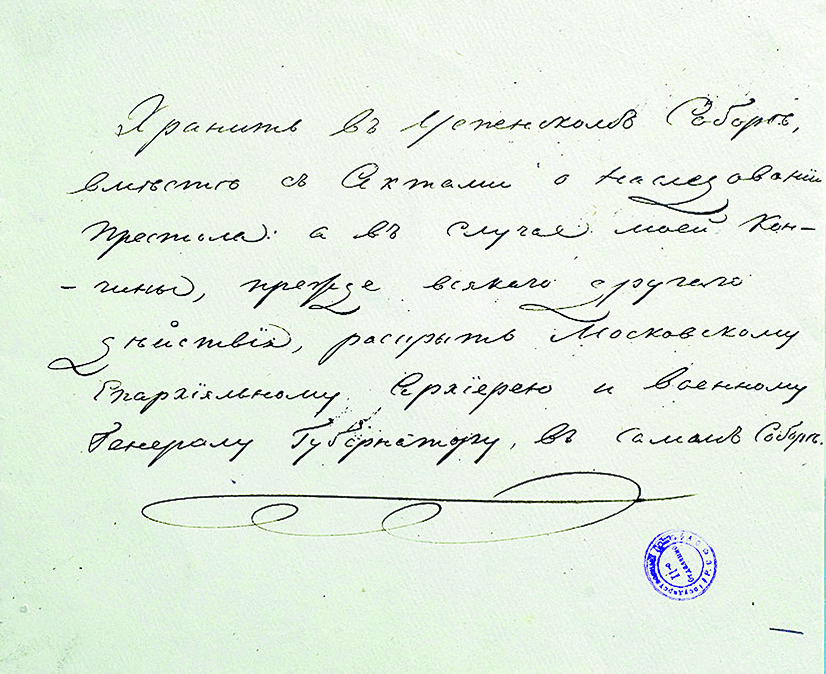 Хранить въ Успенскомъ Соборѣ,
вмѣстѣ съ Актами о наслѣдованіи
Престола: а въ случаѣ моей Кон-
-чины, прежде всякаго другаго
дѣйствія, раскрыть Московскому
Епархіяльному Архіерею и военному
Генералу Губернатору, въ самомъ Соборѣ.